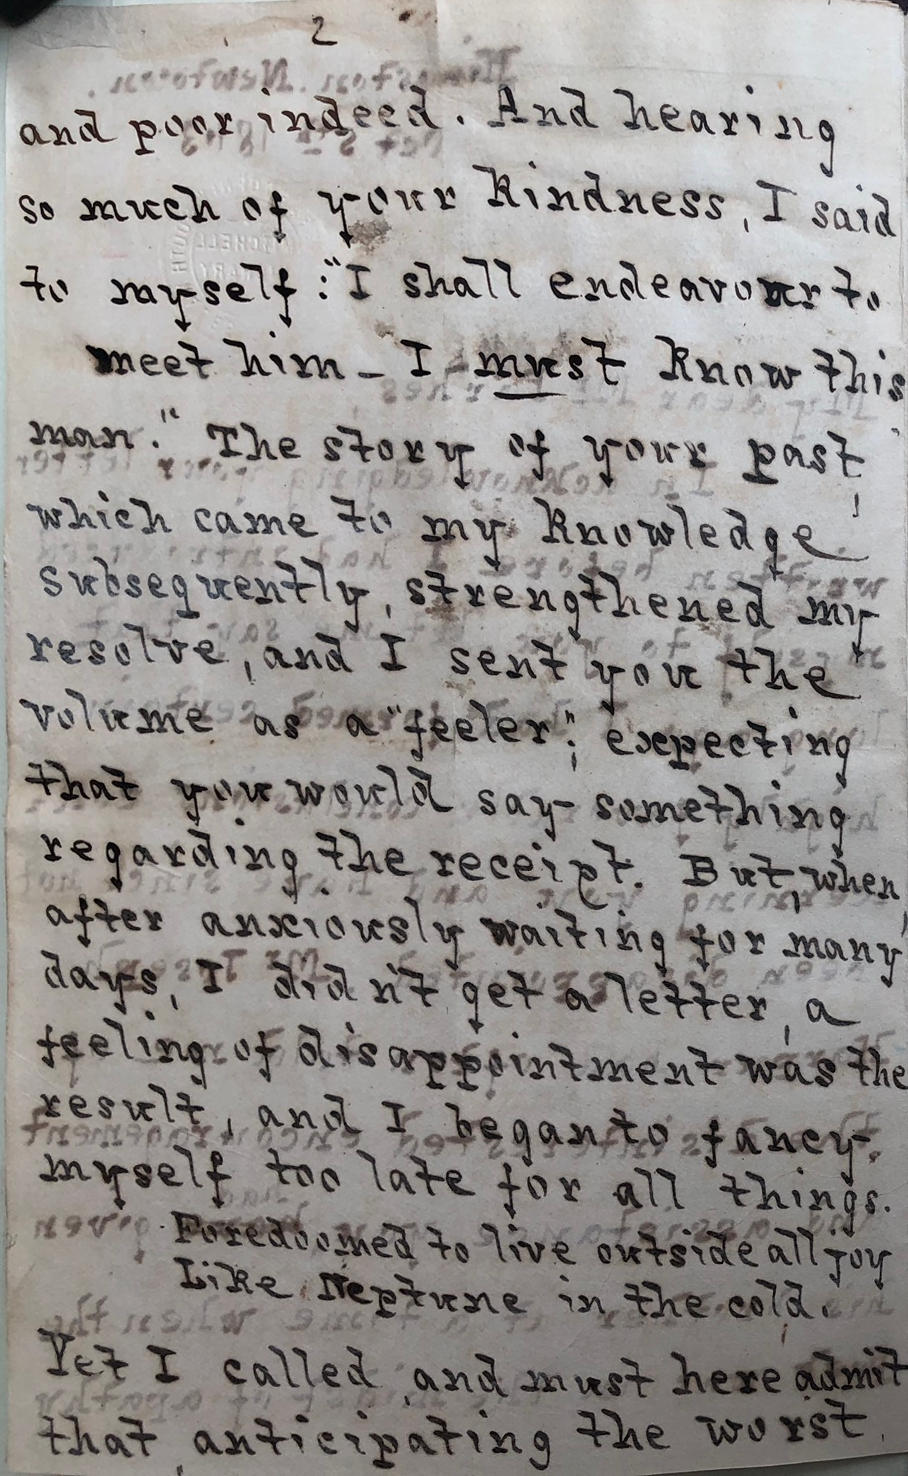 2
and poor indeed. And hearing
so much of your kindness, I said
to myself: "I shall endeavour to
meet him - I must know this
man." The story of your past
which came to my knowledge
subsequently, strengthened my
resolve, and I sent you the
volume as a "feeler", expecting
that you would say something
regarding the receipt. But, when,
after anxiously waiting for many
days, I didn't get a letter, a
feeling of disappointment was the
result, and I began to fancy
myself too late for all things.
Foredoomed to live outside all joy
Like Neptune in the cold.
Yet I called and must here admit
that anticipating the worst